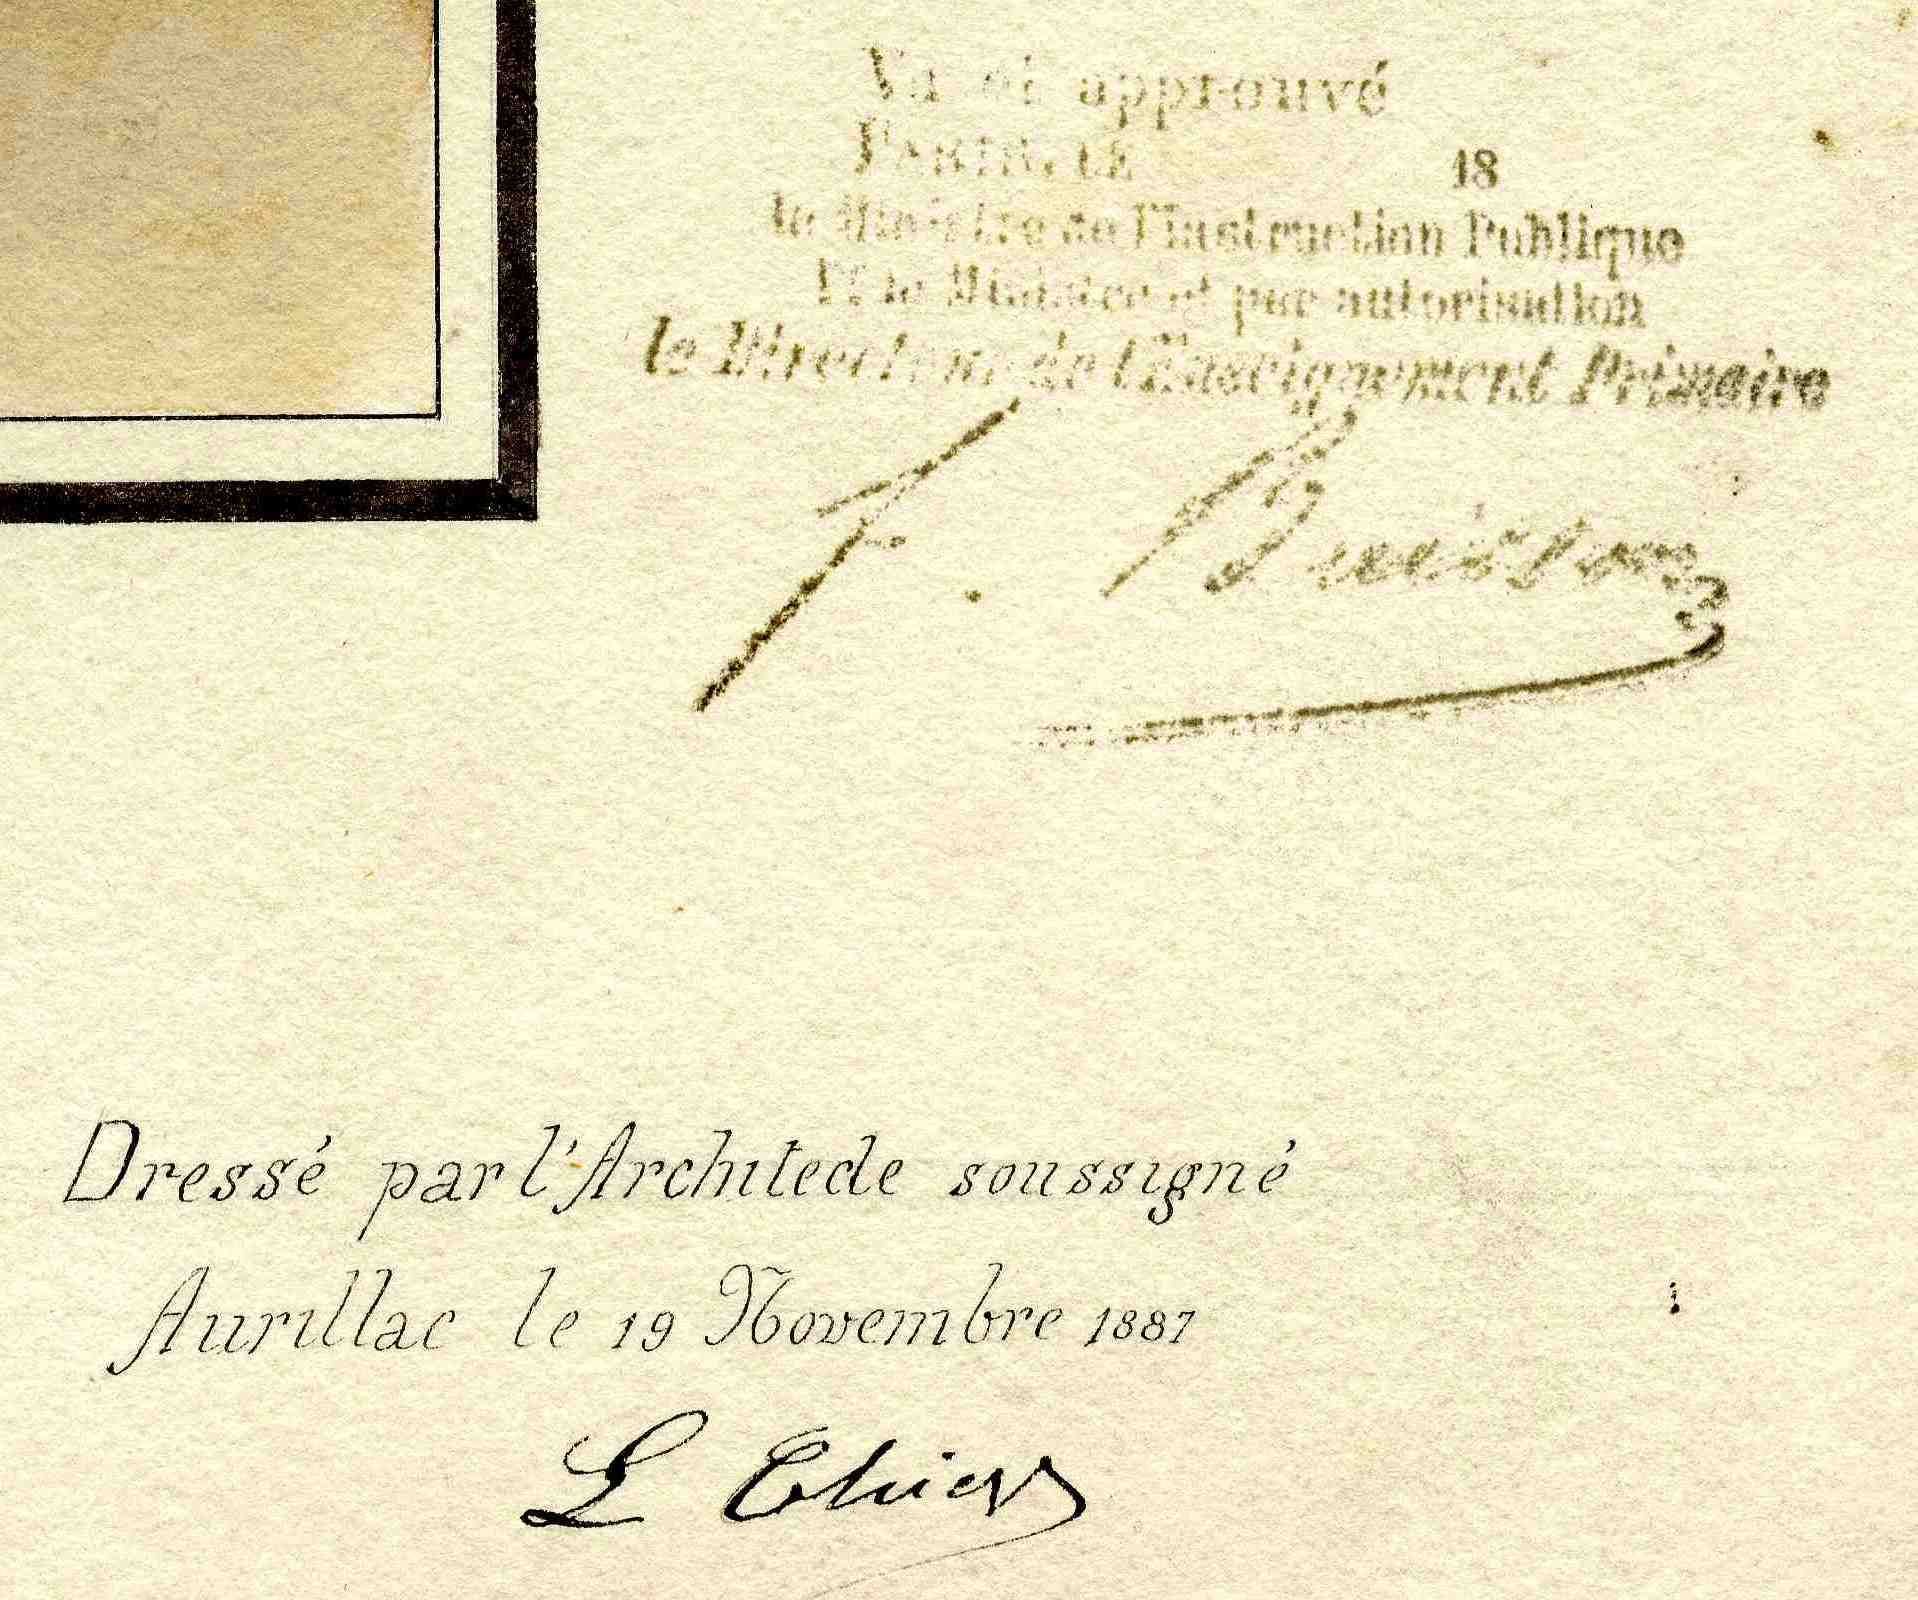 Vu et approuvé
PARIS, LE 18
le Ministre de l'Instruction Publique
Pr le Ministre et par autorisation
le Directeur de l'Enseignement Primaire
F. Buisson
Dressé par l'Architecte soussigné
Aurillac le 19 Novembre 1887
L Thiers